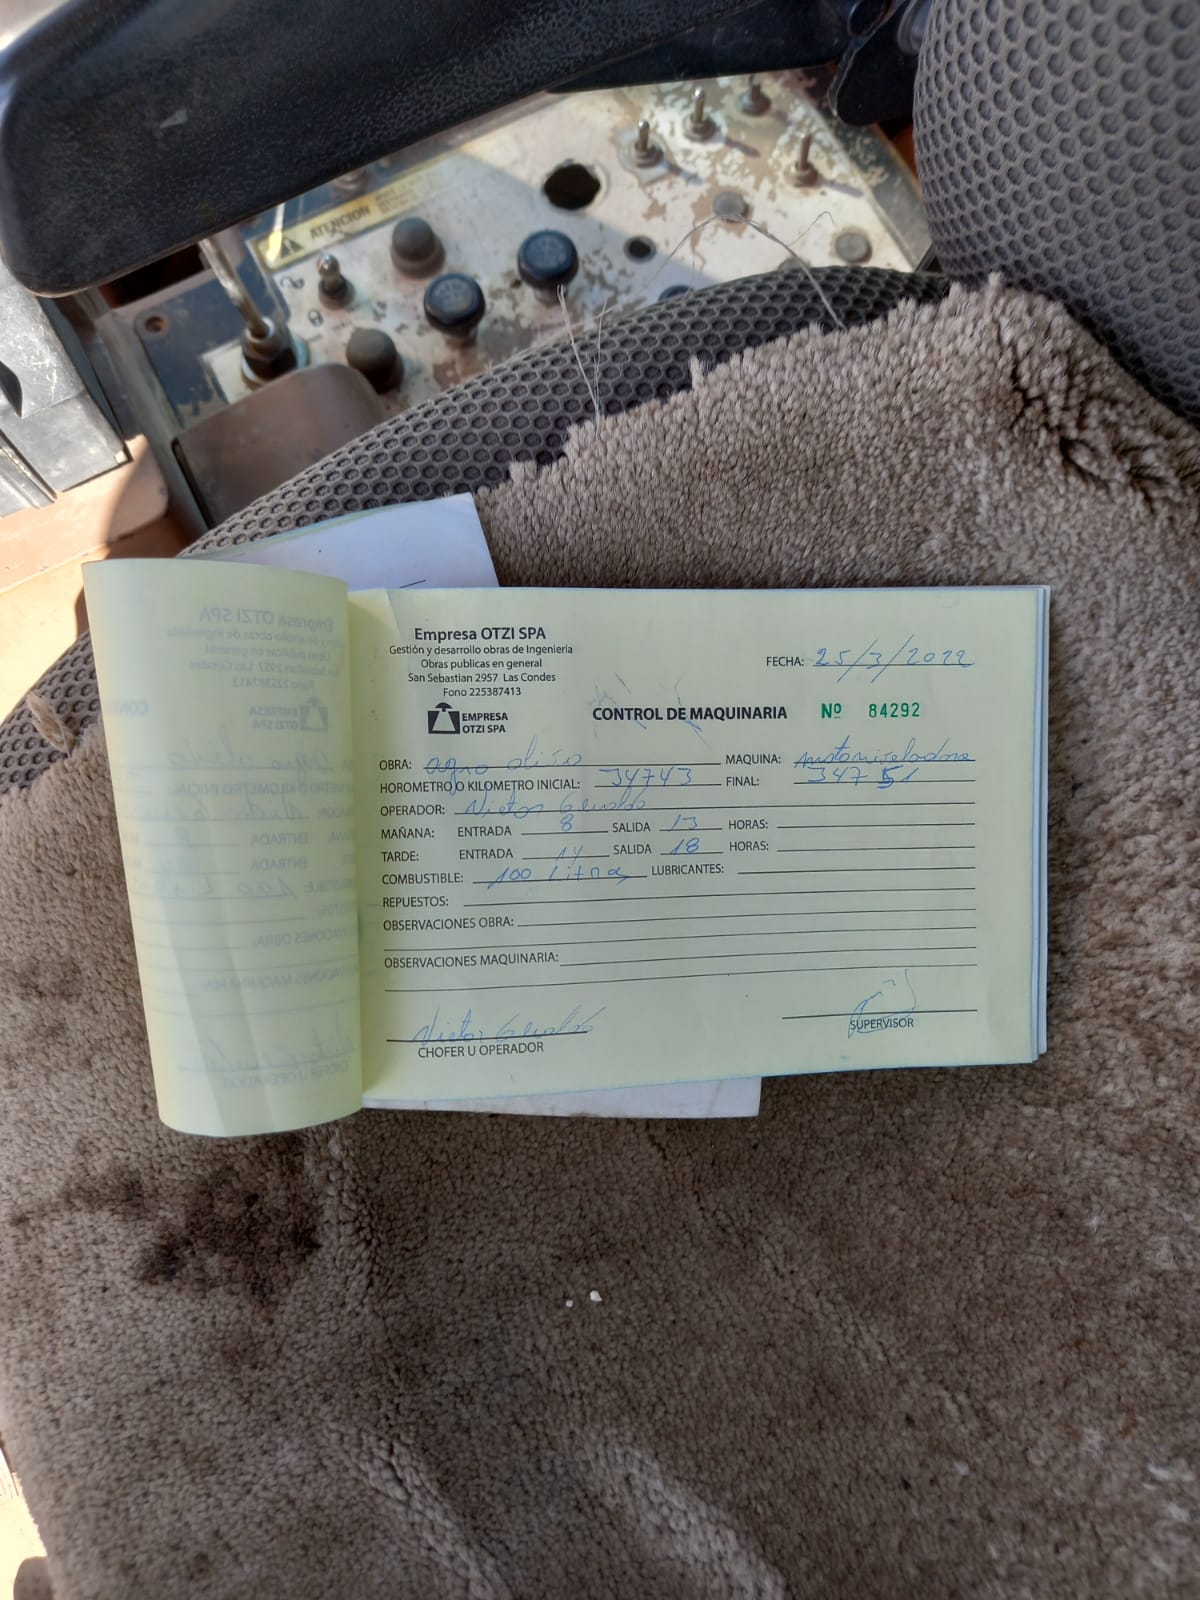 ATENCION
Empresa OTZI SPA
Gestión y desarrollo obras de Ingeniería
Obras publicas en general
San Sebastian 2957 Las Condes
Fono 225387413
EMPRESA
OTZI SPA
FECHA: 25/3/2022
CONTROL DE MAQUINARIA Nº 84292
OBRA: agro MAQUINA: motoniveladora
HOROMETRO/O KILOMETRO INICIAL: 34743 FINAL: 34751
OPERADOR: Victor
MAÑANA: ENTRADA 8 SALIDA 13 HORAS:
TARDE: ENTRADA 14 SALIDA 18 HORAS:
COMBUSTIBLE: 100 Litros LUBRICANTES:
REPUESTOS:
OBSERVACIONES OBRA:
OBSERVACIONES MAQUINARIA:
Victor
CHOFER U OPERADOR
SUPERVISOR